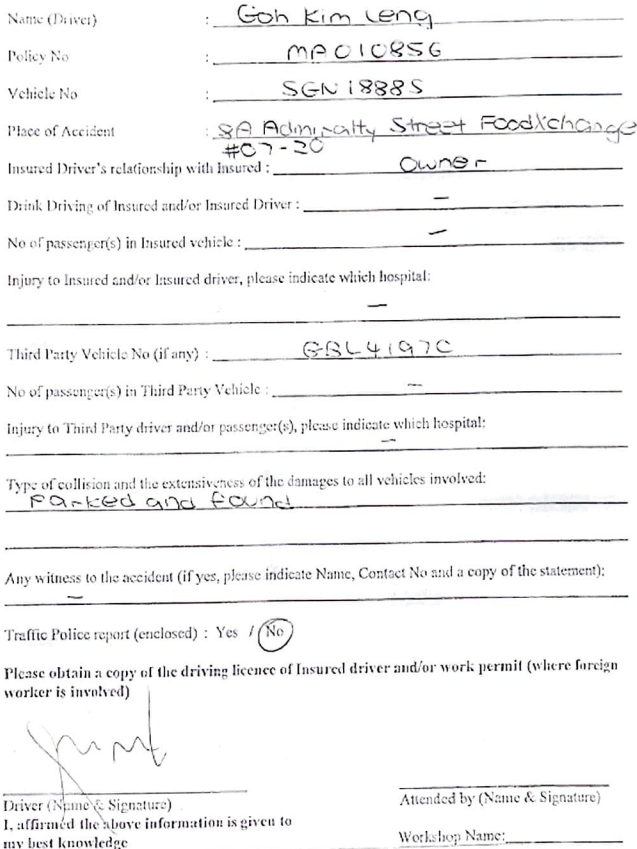 Name (Driver) : Goh Kim Leng
Policy No : MP010856
Vehicle No : SGN1888S
Place of Accident : 8A Admiralty Street FoodXchange
#07-20
Insured Driver's relationship with Insured : Owner
Drink Driving of Insured and/or Insured Driver : -
No of passenger(s) in Insured vehicle : -
Injury to Insured and/or Insured driver, please indicate which hospital:
-
Third Party Vehicle No (if any) : GBL4197C
No of passenger(s) in Third Party Vehicle : -
Injury to Third Party driver and/or passenger(s), please indicate which hospital:
-
Type of collision and the extensiveness of the damages to all vehicles involved:
Parked and found
Any witness to the accident (if yes, please indicate Name, Contact No and a copy of the statement):
-
Traffic Police report (enclosed) : Yes / No
Please obtain a copy of the driving licence of Insured driver and/or work permit (where foreign
worker is involved)
Driver (Name & Signature)
Attended by (Name & Signature)
I, affirmed the above information is given to
my best knowledge
Workshop Name: